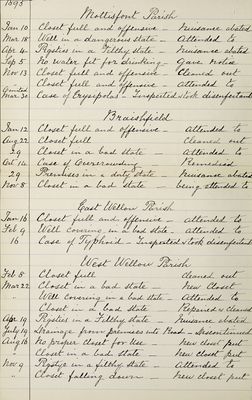 1895
Mottisfont Parish
Jan 10 Closet full and offensive - Nuisance abated
Mar 18 Well in a dangerous state - Attended to
Apr 4 Pigsties in a Filthy state - Nuisance abated
Feb 5 No water fit for drinking - Gave notice
Nov 13 Closet full and offensive - Cleaned out
" Closet full and offensive - Attended to
Omitted
Mar 30 Case of Erysipelas - Inspected & took disinfectant
Braishfield
Jan 12 Closet full and offensive - Attended to
Aug 22 Closet full Cleaned out
29 Closet in a bad state - Attended to
Oct 14 Case of Overcrowding Remedied
29 Premises in a dirty state - Nuisance abated
Nov 8 Closet in a bad state - being attended to
East Wellow Parish
Jan 16 Closet full and offensive - Attended to
Feb 9 Well covering in a bad state - attended to
16 Case of Typhoid - Inspected & took disinfectant
West Wellow Parish
Feb 5 Closet full cleaned out
Mar 22 Closet in a bad state - New Closet
" Well covering in a bad state - Attended to
" Closet in a bad state - Repaired & cleaned
Apr 19 Pigsties in a Filthy state - Nuisance abated
July 19 Drainage from premises into Road - Discontinued
Aug 16 No proper closet for Use - New closet put
" Closet in a bad state - New closet put
Nov 9 Pigstye in a filthy state - Attended to
" Closet falling down - New closet put